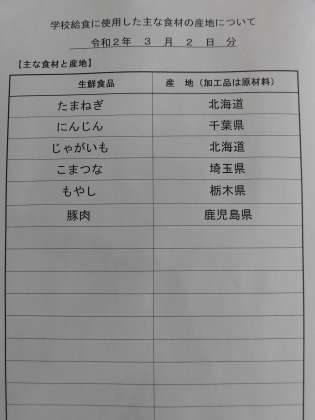 学校給食に使用した主な食材の産地について
令和2年 3 月 2 日 分
【主な食材と産地】
生鮮食品 産 地（加工品は原材料）
たまねぎ 北海道
にんじん 千葉県
じゃがいも 北海道
こまつな 埼玉県
もやし 栃木県
豚肉 鹿児島県